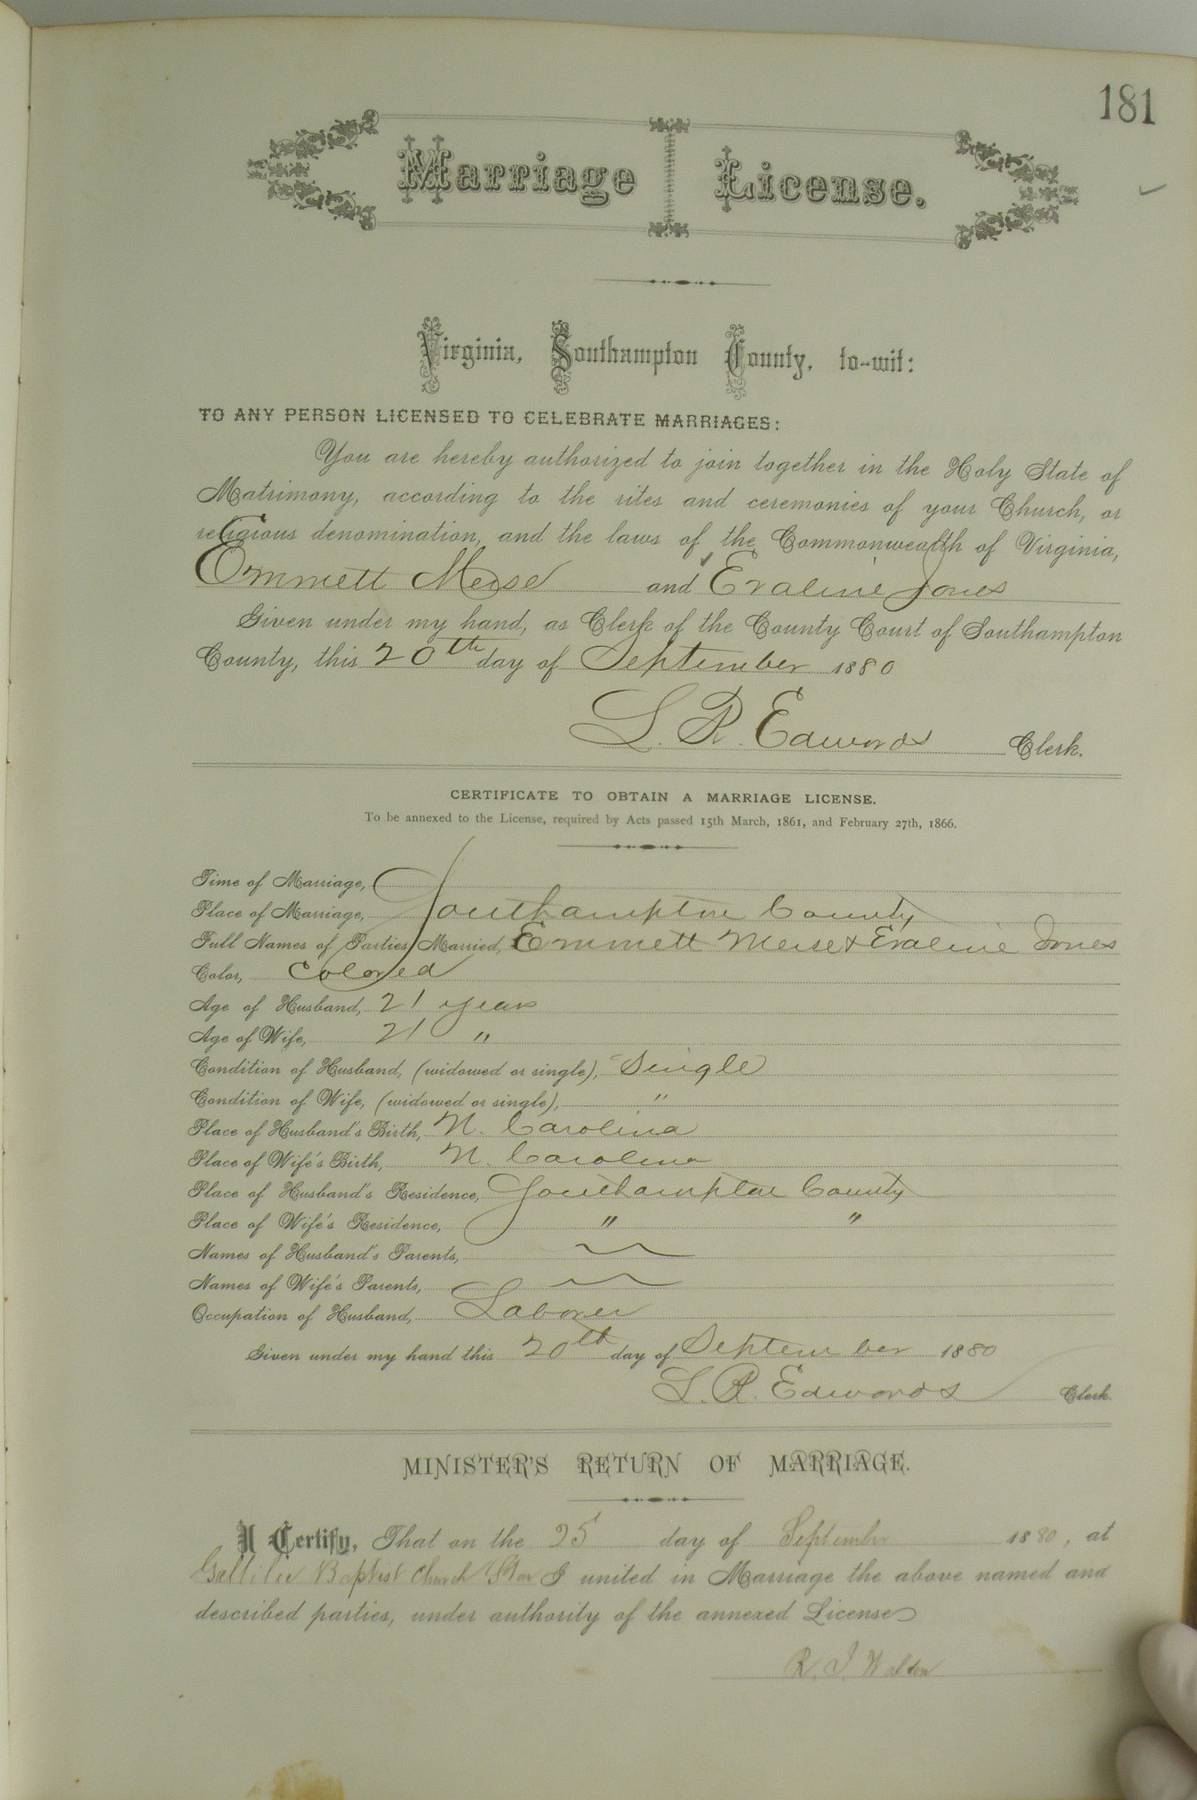 181
Marriage License.
Virginia, Southampton County, to-wit:
TO ANY PERSON LICENSED TO CELEBRATE MARRIAGES:
You are hereby authorized to join together in the Holy State of
Matrimony, according to the rites and ceremonies of your Church, or
religious denomination, and the laws of the Commonwealth of Virginia,
Emmett Meise and Evaline Jones
Given under my hand, as Clerk of the County Court of Southampton
County, this 20th day of September 1880
L. R. Edwards Clerk.
CERTIFICATE TO OBTAIN A MARRIAGE LICENSE.
To be annexed to the License, required by Acts passed 15th March, 1861, and February 27th, 1866.
Time of Marriage,
Place of Marriage, Southampton County
Full Names of Parties Married, Emmett Meise & Evaline Jones
Color, Colored
Age of Husband, 21 years
Age of Wife, 21 "
Condition of Husband, (widowed or single), Single
Condition of Wife, (widowed or single), "
Place of Husband's Birth, N. Carolina
Place of Wife's Birth, N. Carolina
Place of Husband's Residence, Southampton County
Place of Wife's Residence, " "
Names of Husband's Parents,
Names of Wife's Parents,
Occupation of Husband, Laborer
Given under my hand this 20th day of September 1880
L. R. Edwards Clerk.
MINISTER'S RETURN OF MARRIAGE.
I Certify, That on the 25 day of September 1880, at
Gallilee Baptist Church I united in Marriage the above named and
described parties, under authority of the annexed License
R. J. Walden